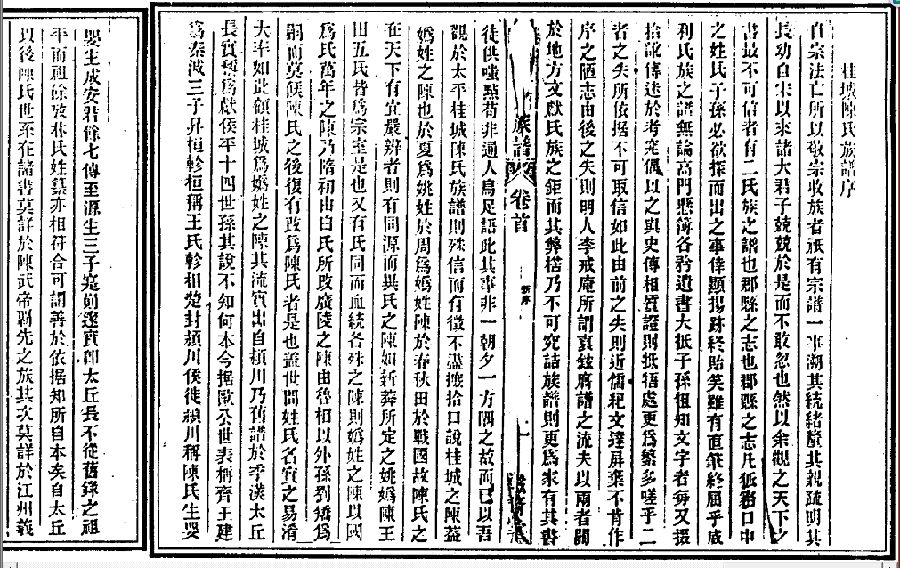 桂城陳氏族譜序
自宗法亡所以敬宗收族者祇有宗譜一事溯其統緒聯其親疏明其
長幼自宋以來諸大君子兢兢於是而不敢忽也然以余觀之天下之
書最不可信者有二氏族之譜也郡縣之志也郡縣之志凡
之姓氏子孫必欲探而出之事倖顯揚跡終貽笑雖有直筆終屈乎
利氏族之譜無論高門懸簿各矜遺書大抵子孫粗知文字者每又摭
拾訛傳述於考究偶以之與史傳相質證則抵牾處更爲繁多嗟乎二
者之失所依據不可取信如此由前之失則近儒紀文達屏棄不肯作
序之陋志由後之失則明人李戒庵所謂哀錢磨譜之流夫以兩者關
於地方文獻氏族之鉅而其弊若乃不可究詰族譜則更爲家有其書
族譜 卷首
新序
徒供嗤點苟非通人烏足語此其事非一朝夕一方隅之故而已以吾
觀於太平桂城陳氏族譜則殊信而有徵不盡摭拾口說桂城之陳蓋
嬀姓之陳也於夏爲姚姓於周爲嬀姓陳於春秋田於戰國故陳氏之
在天下有宜嚴辨者則有同源而異氏之陳如新莽所定之姚嬀陳王
田五氏皆爲宗室是也又有氏同而血統各殊之陳則嬀姓之陳以國
爲氏萬年之陳乃隋初由白氏所改廣陵之陳由魯相以外孫劉矯爲
嗣而莫侯陳氏之後復有改爲陳氏者是也蓋世間姓氏名實之易淆
大率如此顧桂城爲嬀姓之陳其流實出自潁川乃舊譜於季漢太丘
長實稱爲獻侯平十四世孫其說不知何本今據歐公世表稱齊王建
爲秦滅三子昇桓軫桓稱王氏軫相楚封潁川侯徙潁川稱陳氏生嬰
嬰生成安君餘七傳至源生三子寔崱邃寔卽太丘長不從舊錄之祖
平而祖餘攷林氏姓纂亦相符合可謂善於依据知所自本矣自太丘
以後陳氏世系在諸書莫詳於陳武帝霸先之族其次莫詳於江州義